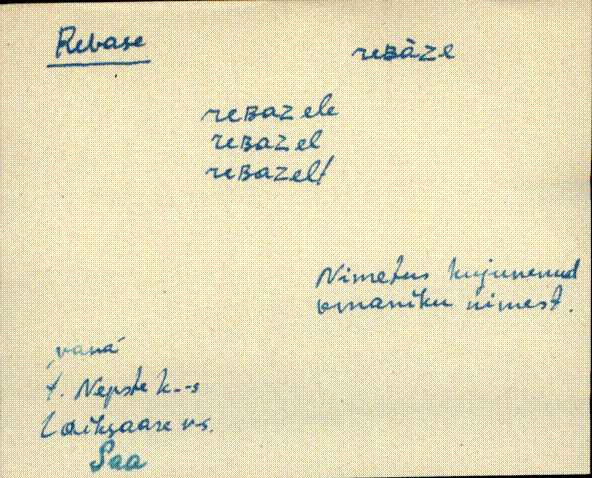 Rebase reʙāze
reʙazele
reʙazel
reʙazelt
Nimetus kujunenud
omaniku nimest.
"vana"
t. Nepste k-s
Laiksaare vs.
Saa